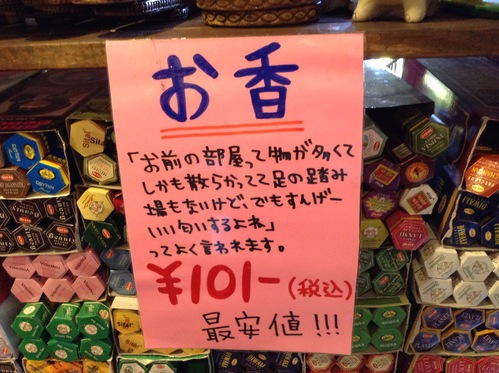 お香
「お前の部屋って物が多くて
しかも散らかってて足の踏み
場もないけど、でもすんげー
いい匂いするよね」
ってよく言われます。
¥101-(税込)
最安値!!!